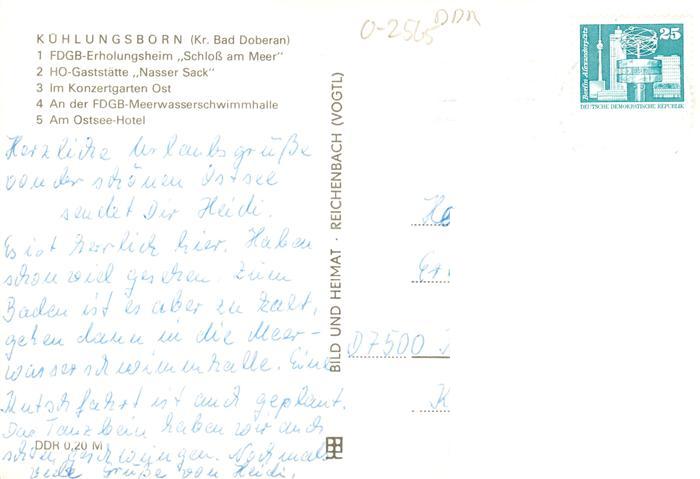 KÜHLUNGSBORN (Kr. Bad Doberan)
1 FDGB-Erholungsheim „Schloß am Meer"
2 HO-Gaststätte „Nasser Sack"
3 Im Konzertgarten Ost
4 An der FDGB-Meerwasserschwimmhalle
5 Am Ostsee-Hotel
Herzliche Urlaubsgrüße
von der schönen Ostsee
sendet Dir Heidi.
Es ist herrlich hier. Haben
schon viel gesehen. Zum
Baden ist es aber zu kalt,
gehen dann in die Meer-
wasserschwimmhalle. Eine
Kutschfahrt ist auch geplant.
Das Tanzbein haben wir auch
schon geschwungen. Nochmals
viele Grüße von Heidi.
DDR 0,20 M
BILD UND HEIMAT · REICHENBACH (VOGTL)
0-2565 DDR
25
Berlin Alexanderplatz
DEUTSCHE DEMOKRATISCHE REPUBLIK
D7500